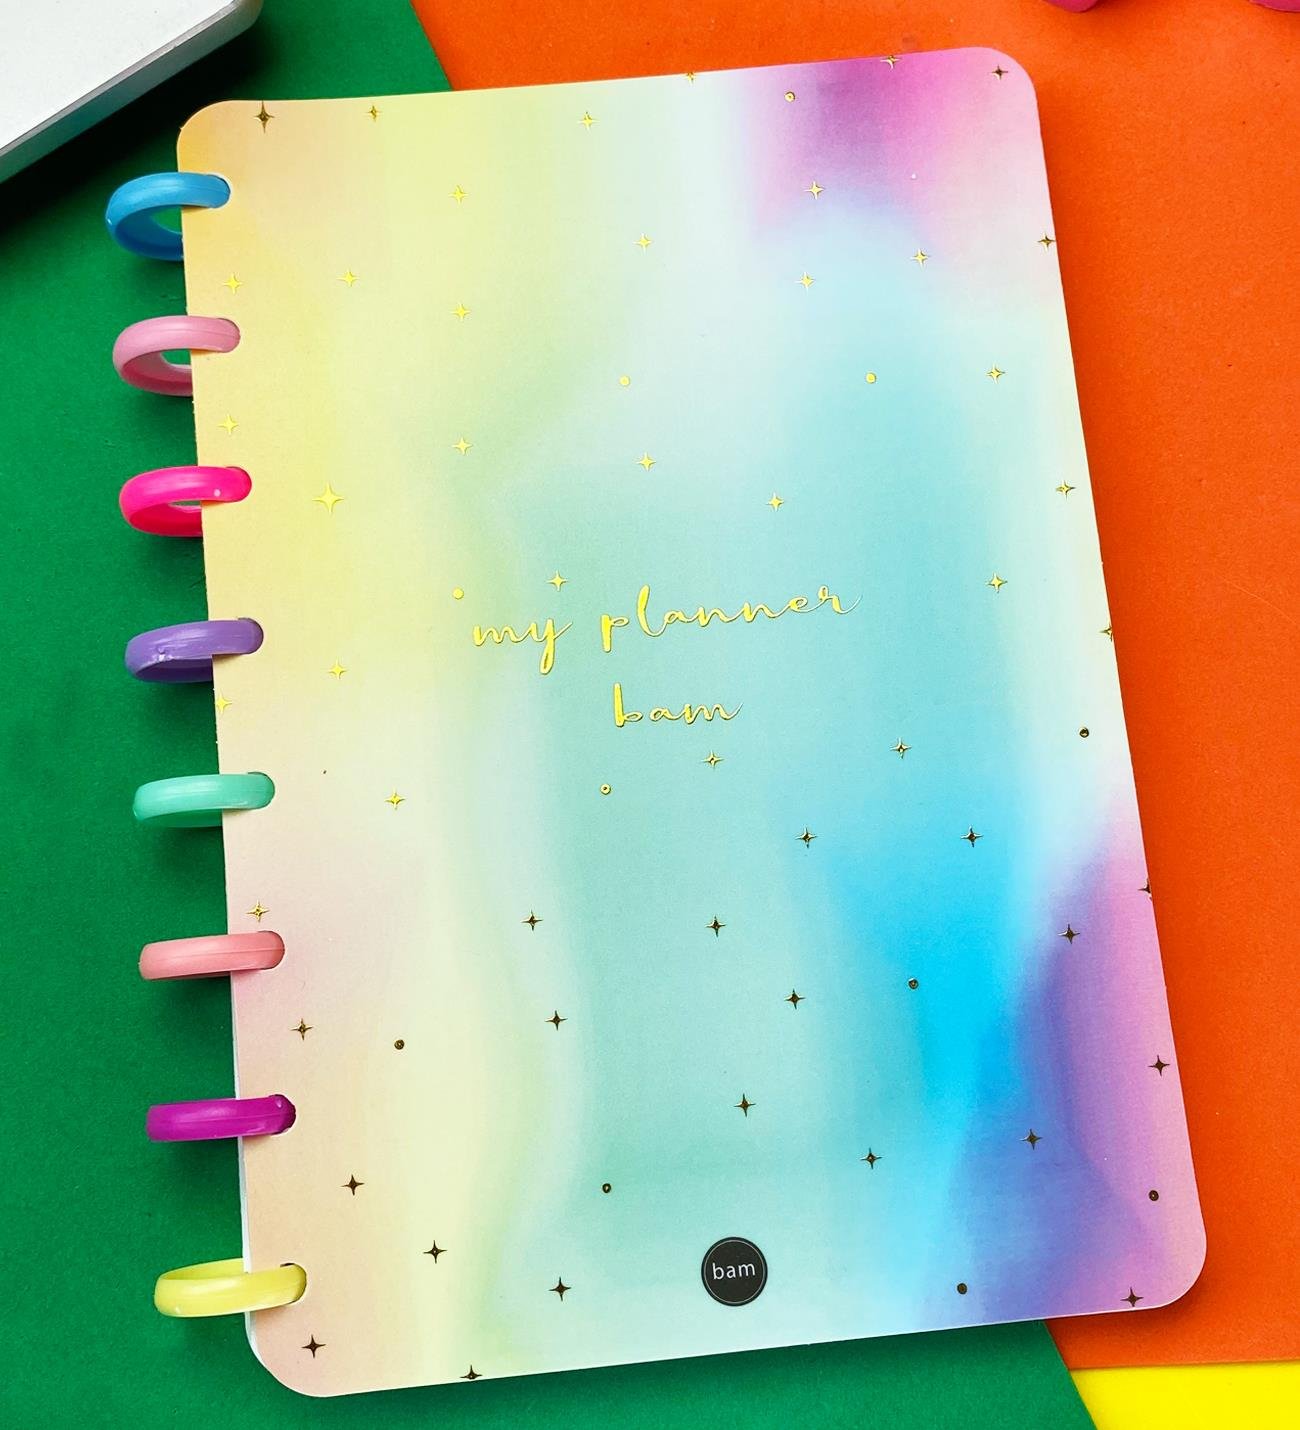 my planner
bam
bam